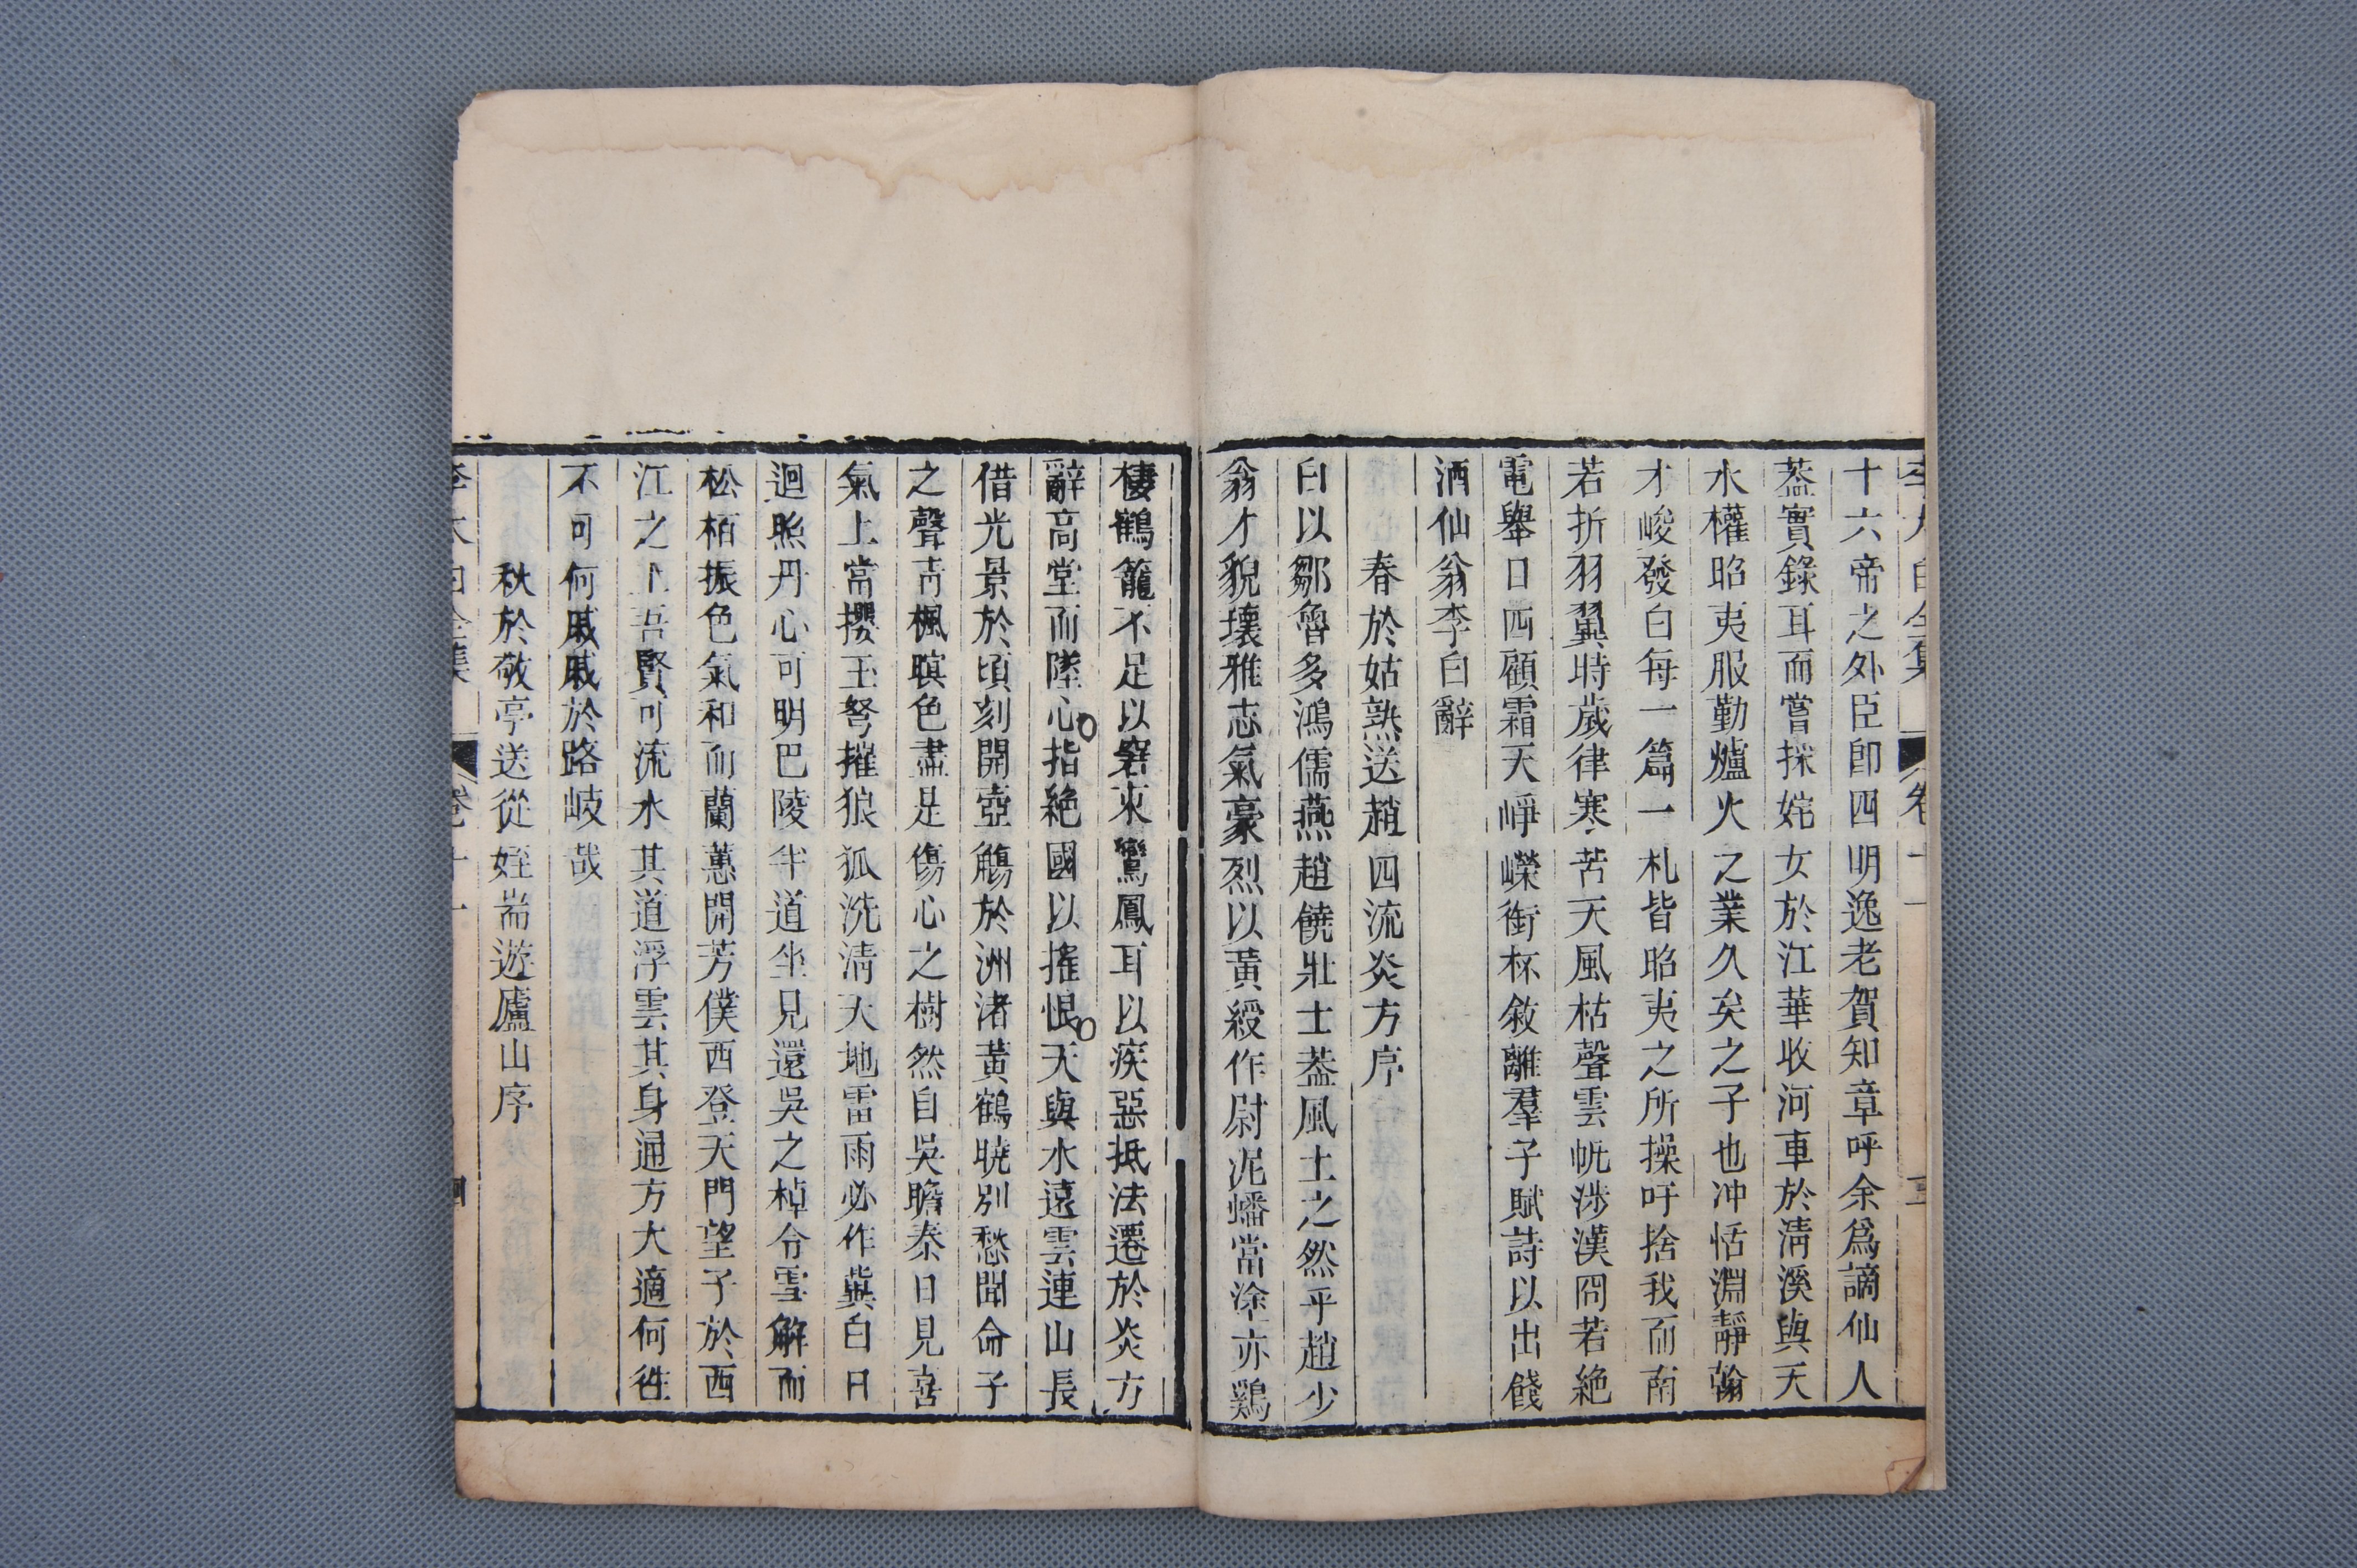 李太白全集 卷十一 三
十六帝之外臣卽四明逸老賀知章呼余爲謫仙人
葢實錄耳而嘗採姹女於江華收河車於淸溪與天
水權昭夷服勤爐火之業久矣之子也冲恬淵靜翰
才峻發白每一篇一札皆昭夷之所操吁捨我而南
若折羽翼時歲律寒苦天風枯聲雲帆涉漢冏若絶
電舉目西顧霜天崢嶸銜杯敘離羣子賦詩以出餞
酒仙翁李白辭
春於姑熟送趙四流炎方序
白以鄒魯多鴻儒燕趙饒壯士葢風土之然乎趙少
翁才貌壤雅志氣豪烈以黃綬作尉泥蟠當塗亦鷄
棲鶴籠不足以窘束鸞鳳耳以疾惡抵法遷於炎方
辭高堂而墜心指絶國以摧恨天與水遠雲連山長
借光景於頃刻開壺觴於洲渚黃鶴曉別愁聞命子
之聲靑楓暝色盡是傷心之樹然自吳瞻秦日見喜
氣上當攖玉弩摧狼狐洗淸天地雷雨必作冀白日
迴照丹心可明巴陵半道坐見還吳之棹令雪解而
松栢振色氣和而蘭蕙開芳僕西登天門望子於西
江之上吾賢可流水其道浮雲其身通方大適何往
不可何戚戚於路岐哉
秋於敬亭送從姪耑遊廬山序
李太白全集 卷十一 四